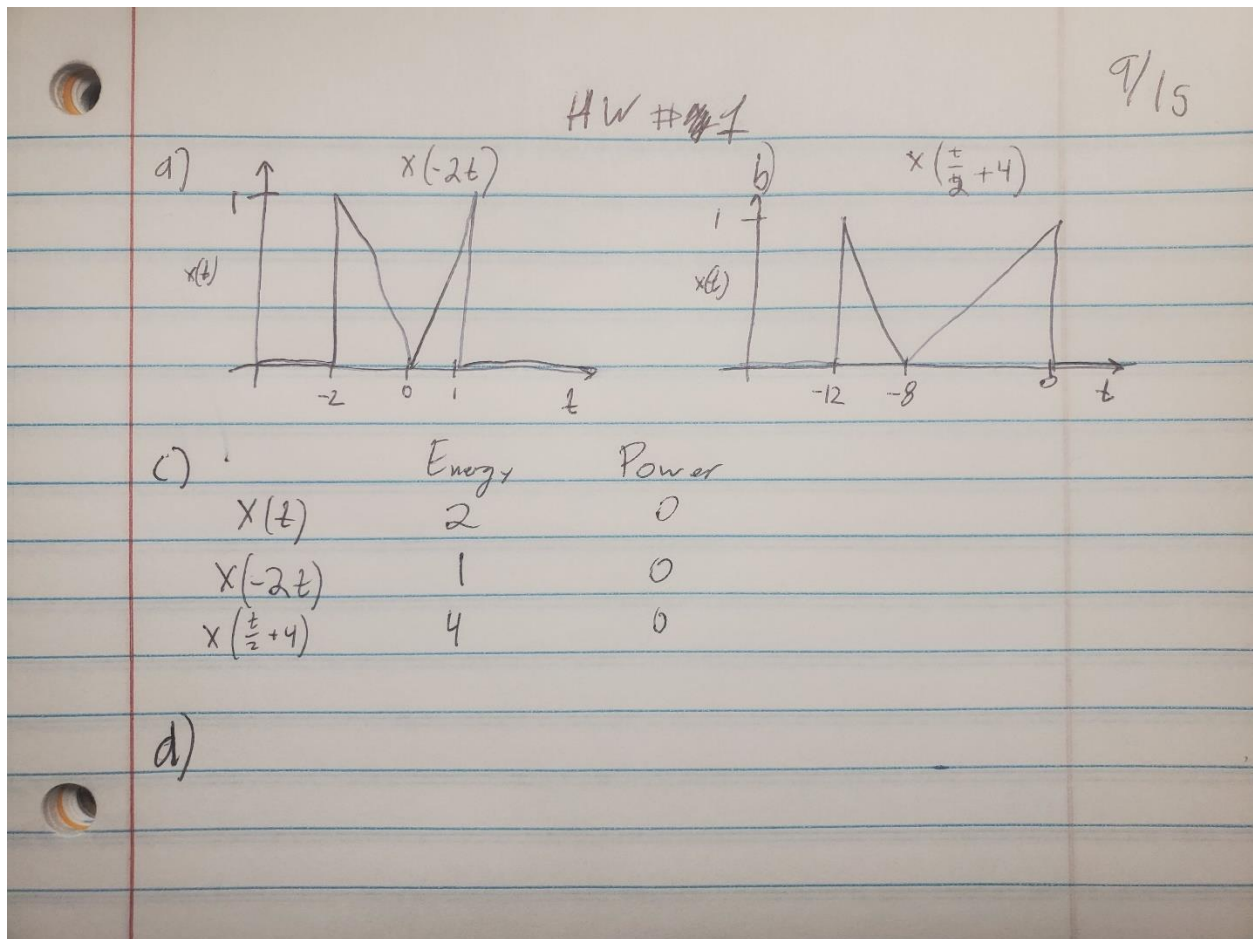 9/15
HW # 1
a) x(-2t)
1
x(t)
-2 0 1 t
b) x(t/2 +4)
1
x(t)
-12 -8 0 t
c) Energy Power
x(t) 2 0
x(-2t) 1 0
x(t/2 +4) 4 0
d)